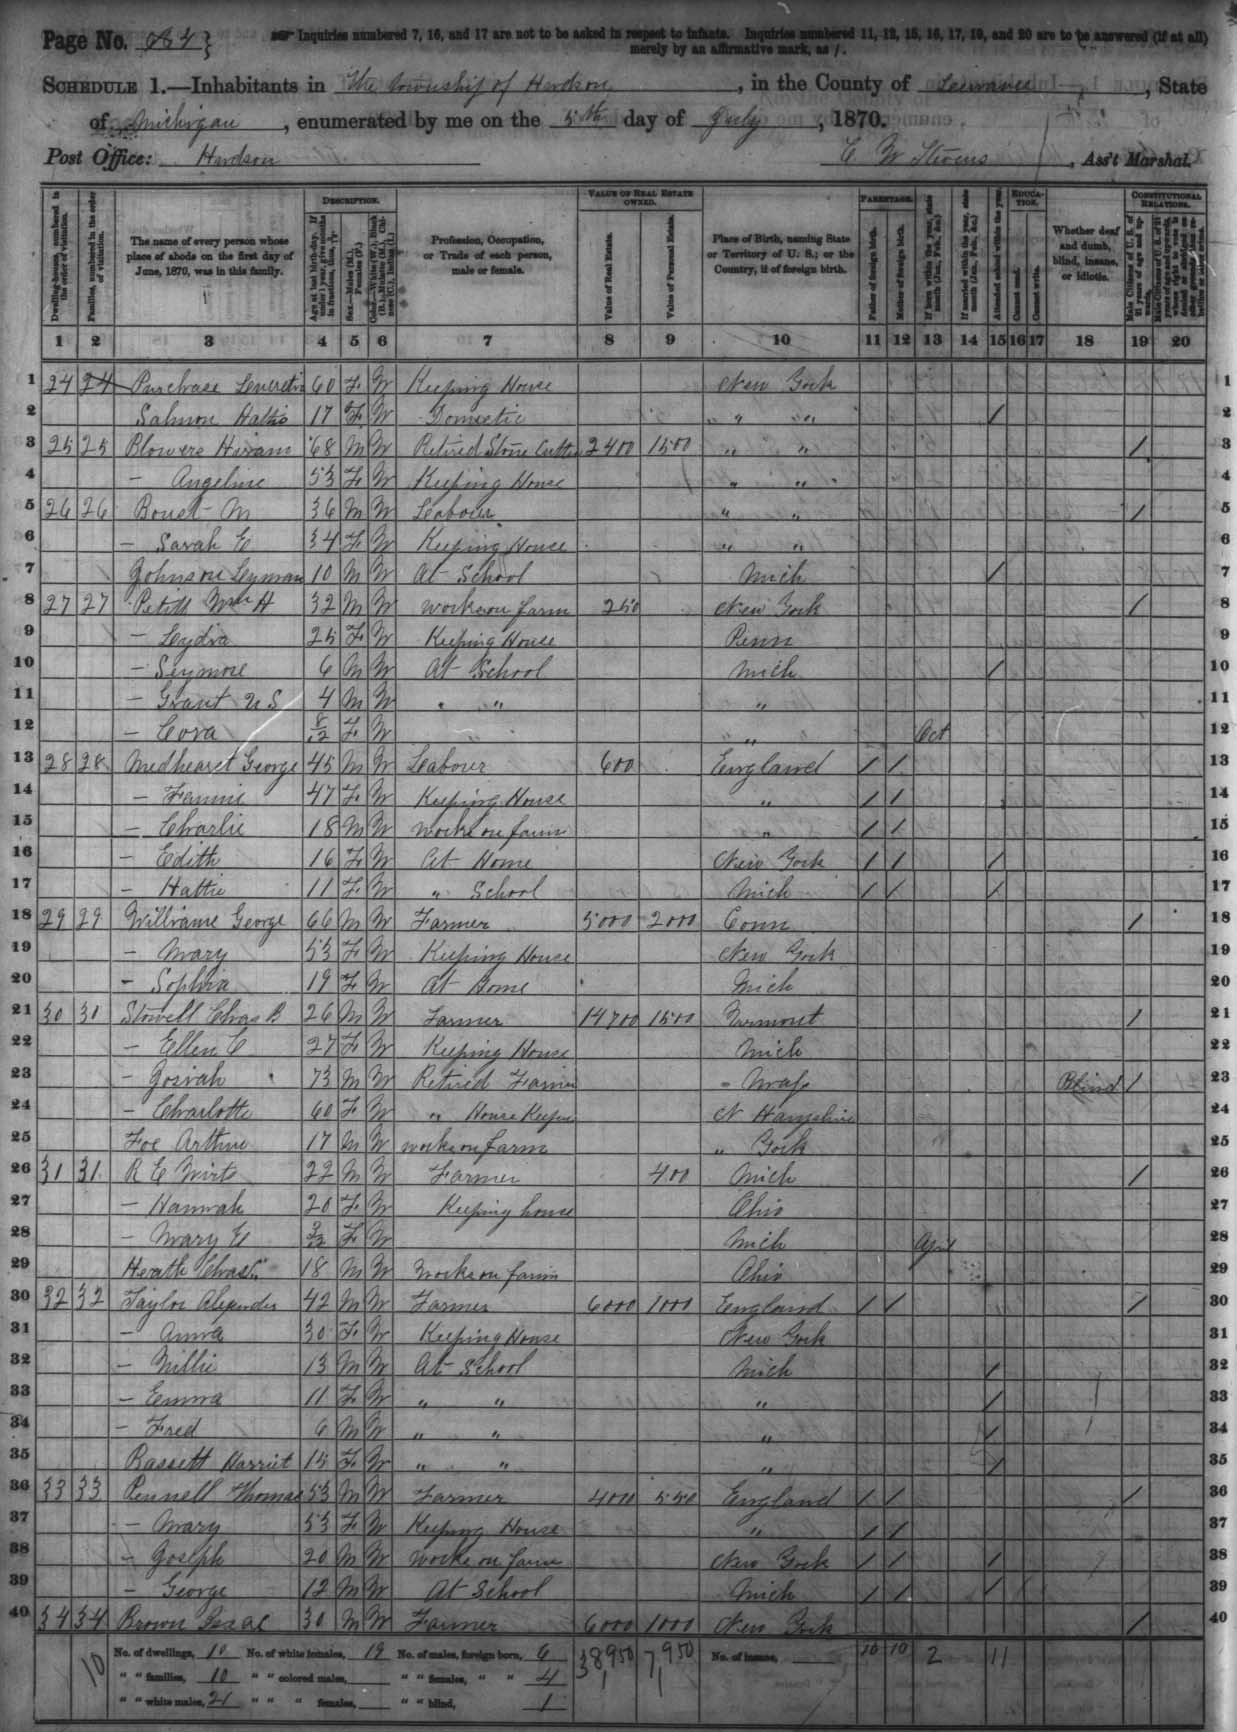 Page No. 
☞ Inquiries numbered 7, 16, and 17 are not to be asked in respect to infants. Inquiries numbered 11, 12, 15, 16, 17, 19, and 20 are to be answered (if at all) merely by an affirmative mark, as /.
SCHEDULE 1.—Inhabitants in The township of Hudson, in the County of Lenawee, State
of Michigan, enumerated by me on the 5th day of July, 1870.
Post Office: Hudson C W Stevens, Ass't Marshal.
Dwelling-houses, numbered in the order of visitation.
Families, numbered in the order of visitation.
The name of every person whose place of abode on the first day of June, 1870, was in this family.
DESCRIPTION.
Age at last birth-day. If under 1 year, give months in fractions, thus, 3/12
Sex.—Males (M.), Females (F.)
Color.—White (W.), Black (B.), Mulatto (M.), Chinese (C.), Indian (I.)
Profession, Occupation, or Trade of each person, male or female.
VALUE OF REAL ESTATE OWNED.
Value of Real Estate.
Value of Personal Estate.
Place of Birth, naming State or Territory of U. S.; or the Country, if of foreign birth.
PARENTAGE.
Father of foreign birth.
Mother of foreign birth.
If born within the year, state month (Jan., Feb., &c.)
If married within the year, state month (Jan., Feb., &c.)
Attended school within the year.
EDUCATION.
Cannot read.
Cannot write.
Whether deaf and dumb, blind, insane, or idiotic.
CONSTITUTIONAL RELATIONS.
Male Citizens of U. S. of 21 years of age and upwards.
1 2 3 4 5 6 7 8 9 10 11 12 13 14 15 16 17 18 19 20
1 24 24 Purchase 60 F W Keeping House New York 1
2 Salmon Hattie 17 F W Domestic " " / 2
3 25 25 Blowers Hiram 68 M W Retired Stone Cutter 2400 1500 " " / 3
4 – Angeline 53 F W Keeping House " " 4
5 26 26 M 36 M W Labour " " / 5
6 – Sarah E 34 F W Keeping House " " 6
7 Johnson Lyman 10 M W At School Mich / 7
8 27 27 Petitt Wm H 32 M W works on farm 250 New York / 8
9 – Lydia 25 F W Keeping House Penn 9
10 – Seymore 6 M W At School Mich / 10
11 – Grant U S 4 M W " " " 11
12 – Cora 8/12 F W " " Oct 12
13 28 28 Medhearst George 45 M W Labour 600 England / / 13
14 – Fannie 47 F W Keeping House " / / 14
15 – Charlie 18 M W works on farm " / / 15
16 – Edith 16 F W At Home New York / / / 16
17 – Hattie 11 F W " School Mich / / / 17
18 29 29 Williams George 66 M W Farmer 5000 2000 Conn / 18
19 – Mary 53 F W Keeping House New York 19
20 – Sophia 19 F W At Home Mich 20
21 30 30 Stowell Chas B 26 M W Farmer 14700 1500 Vermont / 21
22 – Ellen C 27 F W Keeping House Mich 22
23 – Josiah 73 M W Retired Farmer Mass Blind / 23
24 – Charlotte 60 F W " House Keeper N Hampshire 24
25 Foe Arthur 17 M W works on farm " York 25
26 31 31 R E Wirts 22 M W Farmer 400 Mich / 26
27 – Hannah 20 F W Keeping house Ohio 27
28 – Mary E 3/12 F W Mich April 28
29 Heath Chas 18 M W Works on farm Ohio 29
30 32 32 Taylor Alexander 42 M W Farmer 6000 1000 England / / / 30
31 – Anna 30 F W Keeping House New York 31
32 – Willie 13 M W At School Mich / 32
33 – Emma 11 F W " " " / 33
34 – Fred 6 M W " " " / 34
35 Bassett Harriet 15 F W " " " / 35
36 33 33 Pennell Thomas 53 M W Farmer 4000 550 England / / / 36
37 – Mary 53 F W Keeping House " / / 37
38 – Joseph 20 M W works on farm New York / / / 38
39 – George 12 M W At School Mich / / / / 39
40 34 34 Brown Isaac 30 M W Farmer 6000 1000 New York / 40
10 No. of dwellings, 10 No. of white females, 19 No. of males, foreign born, 6 38,950 7,950 No. of insane, 10 10 2 11
" " families, 10 " " colored males, " " females, " " 4
" " white males, 21 " " " females, " " blind, 1